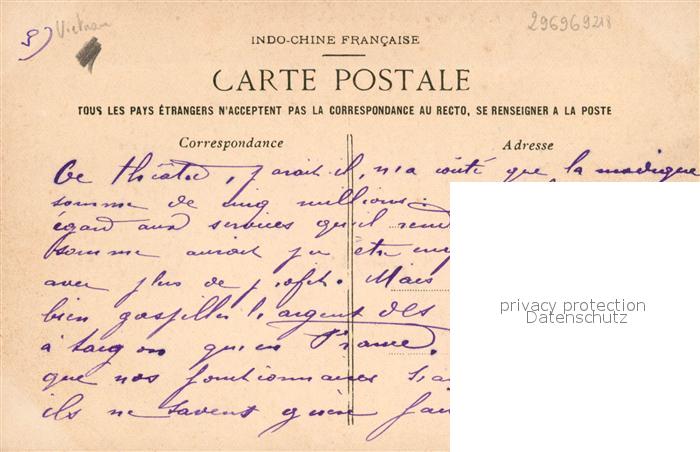 9) Vietnam
296969218
INDO-CHINE FRANÇAISE
CARTE POSTALE
TOUS LES PAYS ÉTRANGERS N'ACCEPTENT PAS LA CORRESPONDANCE AU RECTO, SE RENSEIGNER A LA POSTE
Correspondance
Adresse
Ce théâtre, parait-il, n'a coûté que la modique
somme de cinq millions.
égard aux services qu'il rend
somme aurait pu être em
avec plus de profit. Mais
bien gaspiller l'argent des
à Saigon qu'en France,
que nos fonctionnaires
ils ne savent guère
privacy protection
Datenschutz